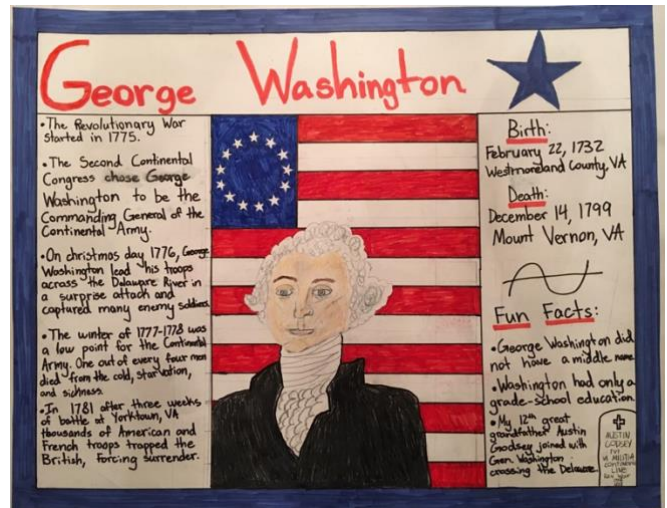 George Washington
•The Revolutionary War
started in 1775.
•The Second Continental
Congress chose George
Washington to be the
Commanding General of the
Continental Army.
•On christmas day 1776, George
Washington lead his troops
across the Delaware River in
a surprise attack and
captured many enemy soldiers.
•The winter of 1777-1778 was
a low point for the Continental
Army. One out of every four men
died from the cold, starvation,
and sickness.
•In 1781 after three weeks
of battle at Yorktown, VA
thousands of American and
French troops trapped the
British, Forcing surrender.
Birth:
February 22, 1732
Westmoreland County, VA
Death:
December 14, 1799
Mount Vernon, VA
Fun Facts:
•George Washington did
not have a middle name
•Washington had only a
grade-school education.
•My 12th great
grandfather Austin
Goodsey joined with
Gen. Washington
crossing the Delaware.
AUSTIN
GODSEY
PVT
VA MILITIA
CONTINENTAL
LINE